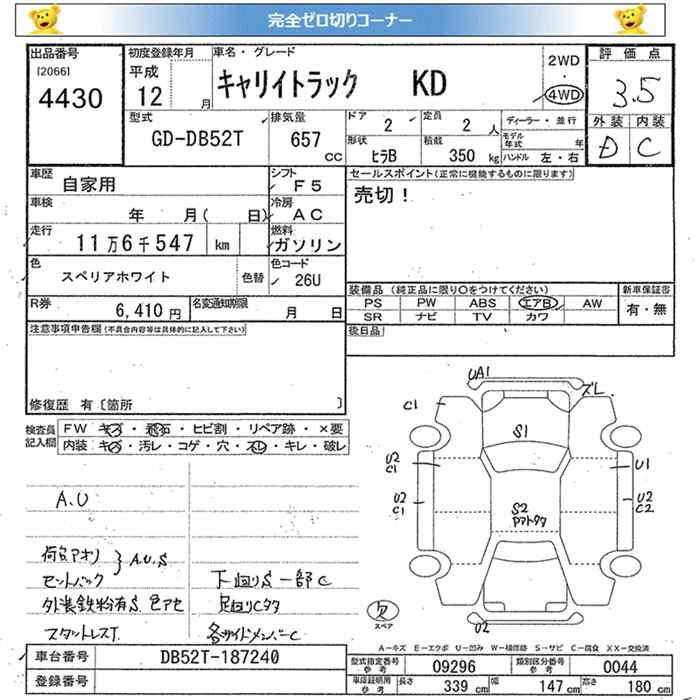 完全ゼロ切りコーナー
出品番号 [2066] 4430
初度登録年月 平成 12 月
車名・グレード キャリイトラック KD
2WD・4WD
評価点 3.5
外装 D 内装 C
型式 GD-DB52T
排気量 657 cc
ドア 2 定員 2 人
形状 ヒラB 積載 350 kg
ディーラー・並行
モデル年式 年
ハンドル 左・右
車歴 自家用
シフト F5
車検 年 月( 日)
冷房 AC
走行 11万6千547 km
燃料 ガソリン
色 スペリアホワイト 色替
色コード 26U
R券 6,410 円
名変通知期限 月 日
セールスポイント(正常に機能するものに限ります)
売切!
装備品(純正品に限り○をつけてください) 新車保証書
PS PW ABS エアB AW 有・無
SR ナビ TV カワ
後日品
注意事項申告欄(不具合内容等は具体的に記入して下さい)
修復歴 有〔箇所 〕
検査員記入欄
FW キズ・飛石・ヒビ割・リペア跡・×要
内装 キズ・汚レ・コゲ・穴・スレ・キレ・破レ
A.U
荷台アオリ
セットバック
A.U.S
外装鉄粉有S.色アセ
スタットレスT.
下廻りS 一部C
足回りCタタ
各サイドメンバーC
UA1
ズレ
C1
S1
U2
C1
U1
U2
C1
U2
C2
S2
U2
スペア
A－キズ E－エクボ U－凹み W－補修跡 S－サビ C－腐食 XX－交換済
車台番号 DB52T-187240
登録番号
型式指定番号 参考 09296 類別区分番号 参考 0044
車庫証明用 参考 長さ 339 cm 幅 147 cm 高さ 180 cm